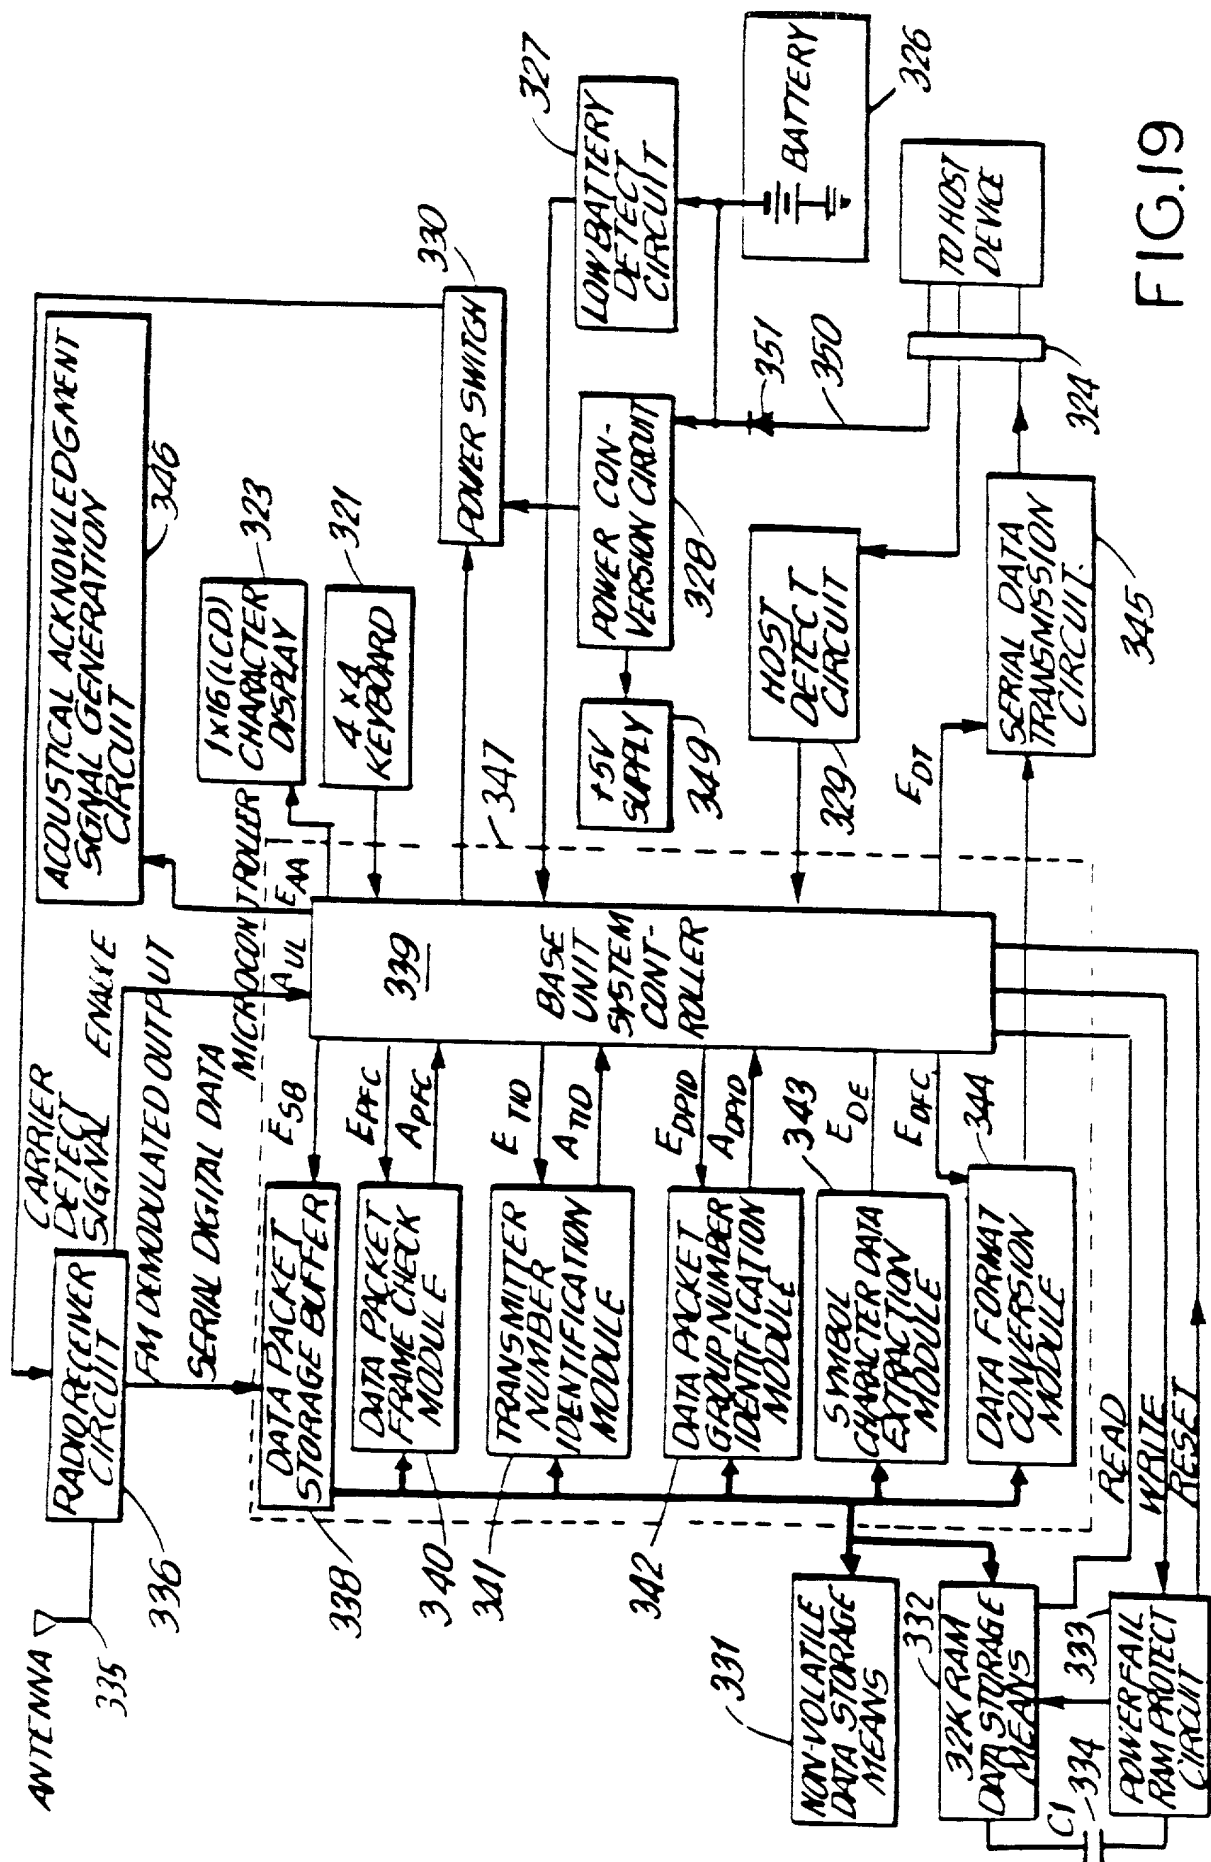 ANTENNA
335
RADIO RECEIVER
CIRCUIT
336
CARRIER
DETECT
SIGNAL
ENABLE
FM DEMODULATED OUTPUT
SERIAL DIGITAL DATA
MICROCONTROLLER
A UL
E AA
ACOUSTICAL ACKNOWLEDGMENT
SIGNAL GENERATION
CIRCUIT
346
1x16 (LCD)
CHARACTER
DISPLAY
323
4 x 4
KEYBOARD
321
POWER SWITCH
330
347
LOW BATTERY
DETECT
CIRCUIT
327
BATTERY
326
POWER CON-
VERSION CIRCUIT
328
+5V
SUPPLY
349
351
350
HOST
DETECT
CIRCUIT
329
TO HOST
DEVICE
324
SERIAL DATA
TRANSMISSION
CIRCUIT.
345
E DT
339
BASE
UNIT
SYSTEM
CONT-
ROLLER
DATA PACKET
STORAGE BUFFER
338
E SB
DATA PACKET
FRAME CHECK
MODULE
340
E PFC
A PFC
TRANSMITTER
NUMBER
IDENTIFICATION
MODULE
341
E TID
A TID
DATA PACKET
GROUP NUMBER
IDENTIFICATION
MODULE
342
E DPID
A DPID
SYMBOL
CHARACTER DATA
EXTRACTION
MODULE
343
E DE
DATA FORMAT
CONVERSION
MODULE
344
E DFC
READ
WRITE
RESET
NON-VOLATILE
DATA STORAGE
MEANS
331
32K RAM
DATA STORAGE
MEANS
332
POWER FAIL
RAM PROTECT
CIRCUIT
333
C1
334
FIG.19